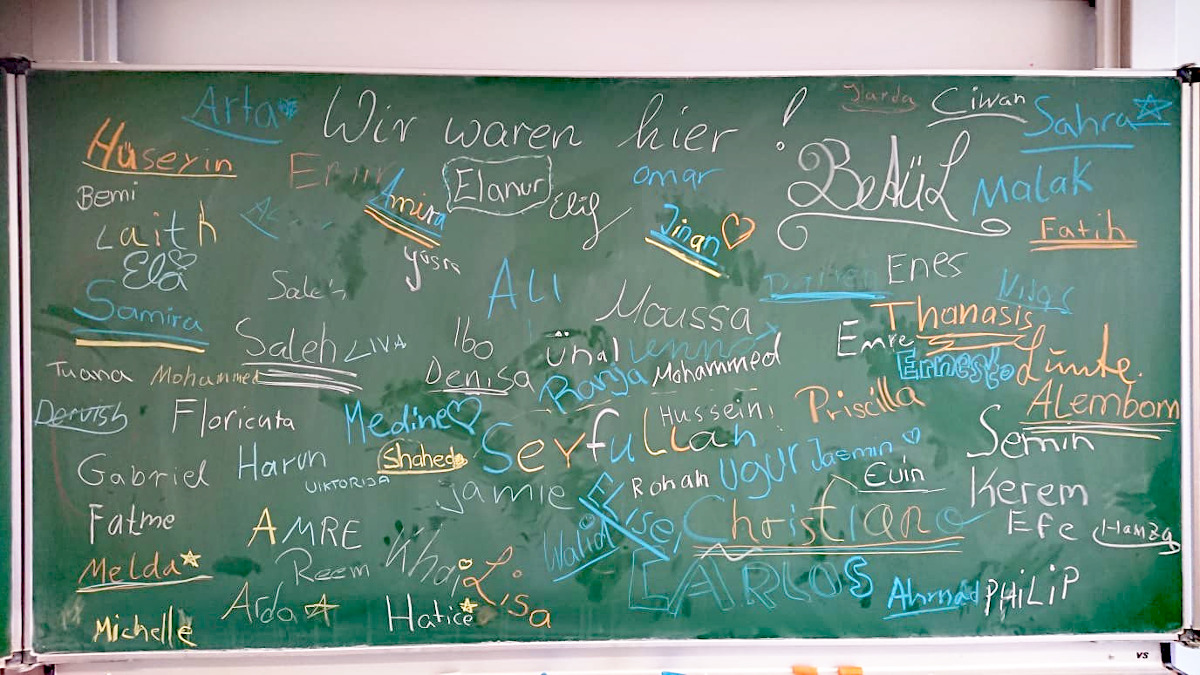 Wir waren hier!
Arta
Ciwan
Sahra
Hüseyin
Elanur
Elif
omar
BetüL
Malak
Bemi
Amira
Jinan
Fatih
Laith
Yüsra
Ela
Saleh
ALI
Enes
Samira
Moussa
Thanasis
Saleh
LIVA
Ibo
ünal
Lennox
Emre
Ernesto
Tuana
Mohammed
Denisa
Ranja
Mohammed
ALembom
Dervish
Floricuta
Medine
Seyfullah
Hussein
Priscilla
Semin
Gabriel
Harun
Shahed
VIKTORIJA
Jamie
Rohan
Ugur
Jasmin
Evin
Kerem
Fatme
AMRE
Walid
Else
Christiano
Efe
Hamza
Melda
Reem
Lisa
CARLOS
Ahmad
PHiLiP
Michelle
Arda
Hatice
vs